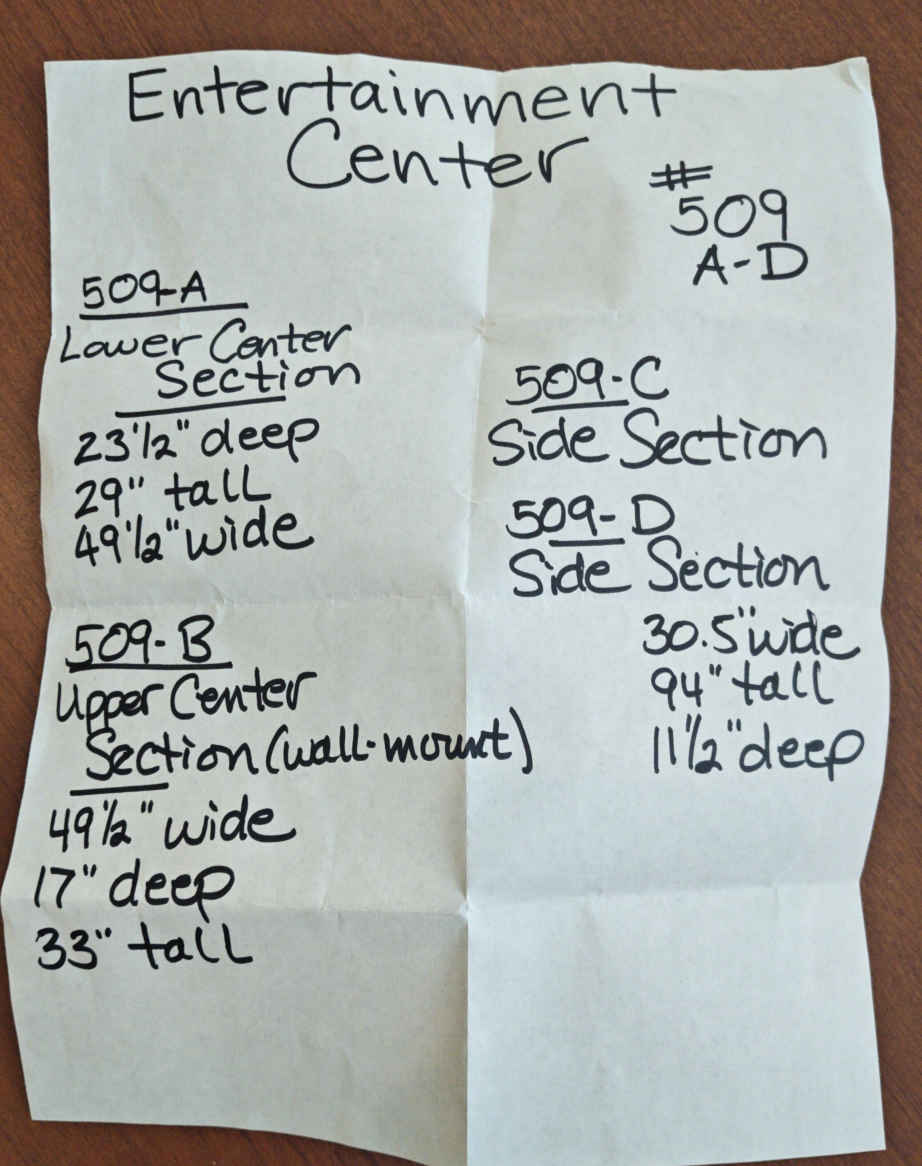 Entertainment
Center
#
509
A-D
509-A
Lower Center
Section
23 1/2" deep
29" tall
49 1/2" wide
509-B
Upper Center
Section (wall-mount)
49 1/2" wide
17" deep
33" tall
509-C
Side Section
509-D
Side Section
30.5" wide
94" tall
11 1/2" deep